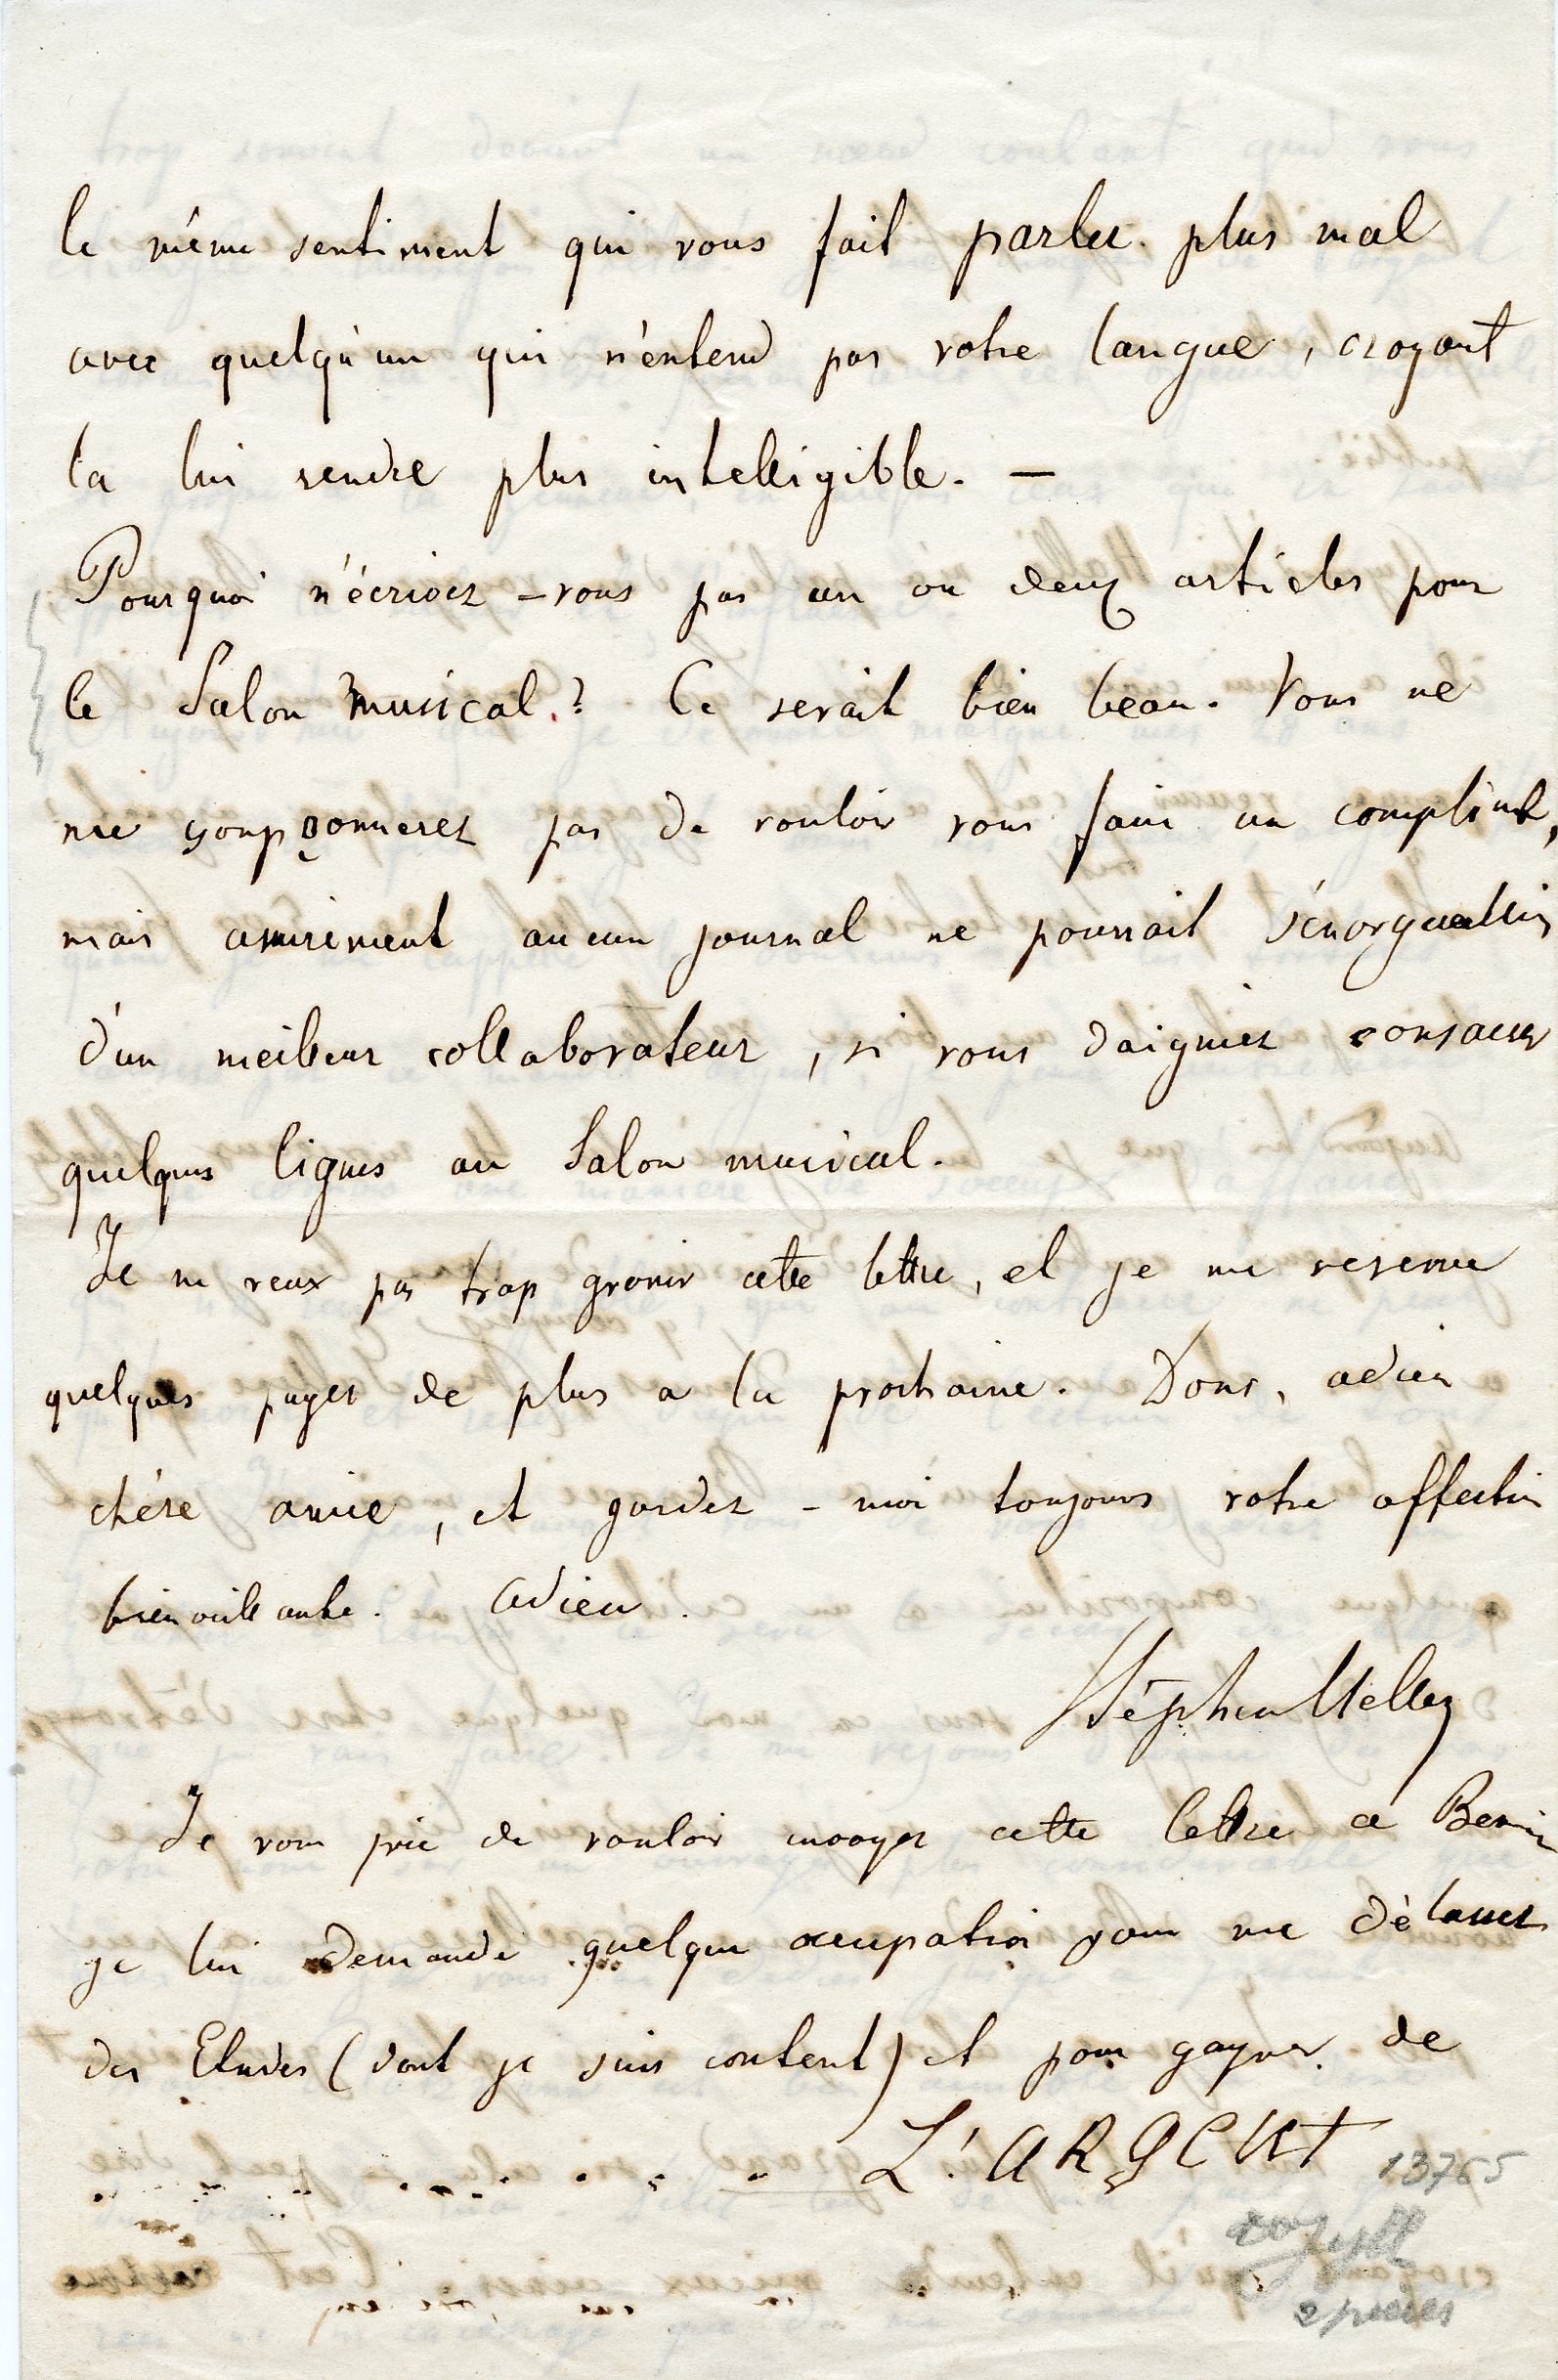 le même sentiment qui vous fait parler plus mal
avec quelqu'un qui n'entend pas votre langue, croyant
la lui rendre plus intelligible. —
Pourquoi n'écrivez-vous pas un ou deux articles pour
le Salon musical.? Ce serait bien beau. Vous ne
me soupçonnerez pas de vouloir vous faire un complimt,
mais assurément aucun journal ne pourrait s'enorgueillir
d'un meilleur collaborateur, si vous daigniez consacrer
quelques lignes au Salon musical.
Je ne veux pas trop grossir cette lettre, et je me reserve
quelques pages de plus a la prochaine. Donc, adieu
chère amie, et gardez-moi toujours votre affection
bienveillante. Adieu.
Stéphen Heller
Je vous prie de vouloir envoyer cette lettre a
je lui demande quelque occupation pour me délasser
des Etudes (dont je suis content) et pour gagner de
L'ARGENT
13765
2 pieces